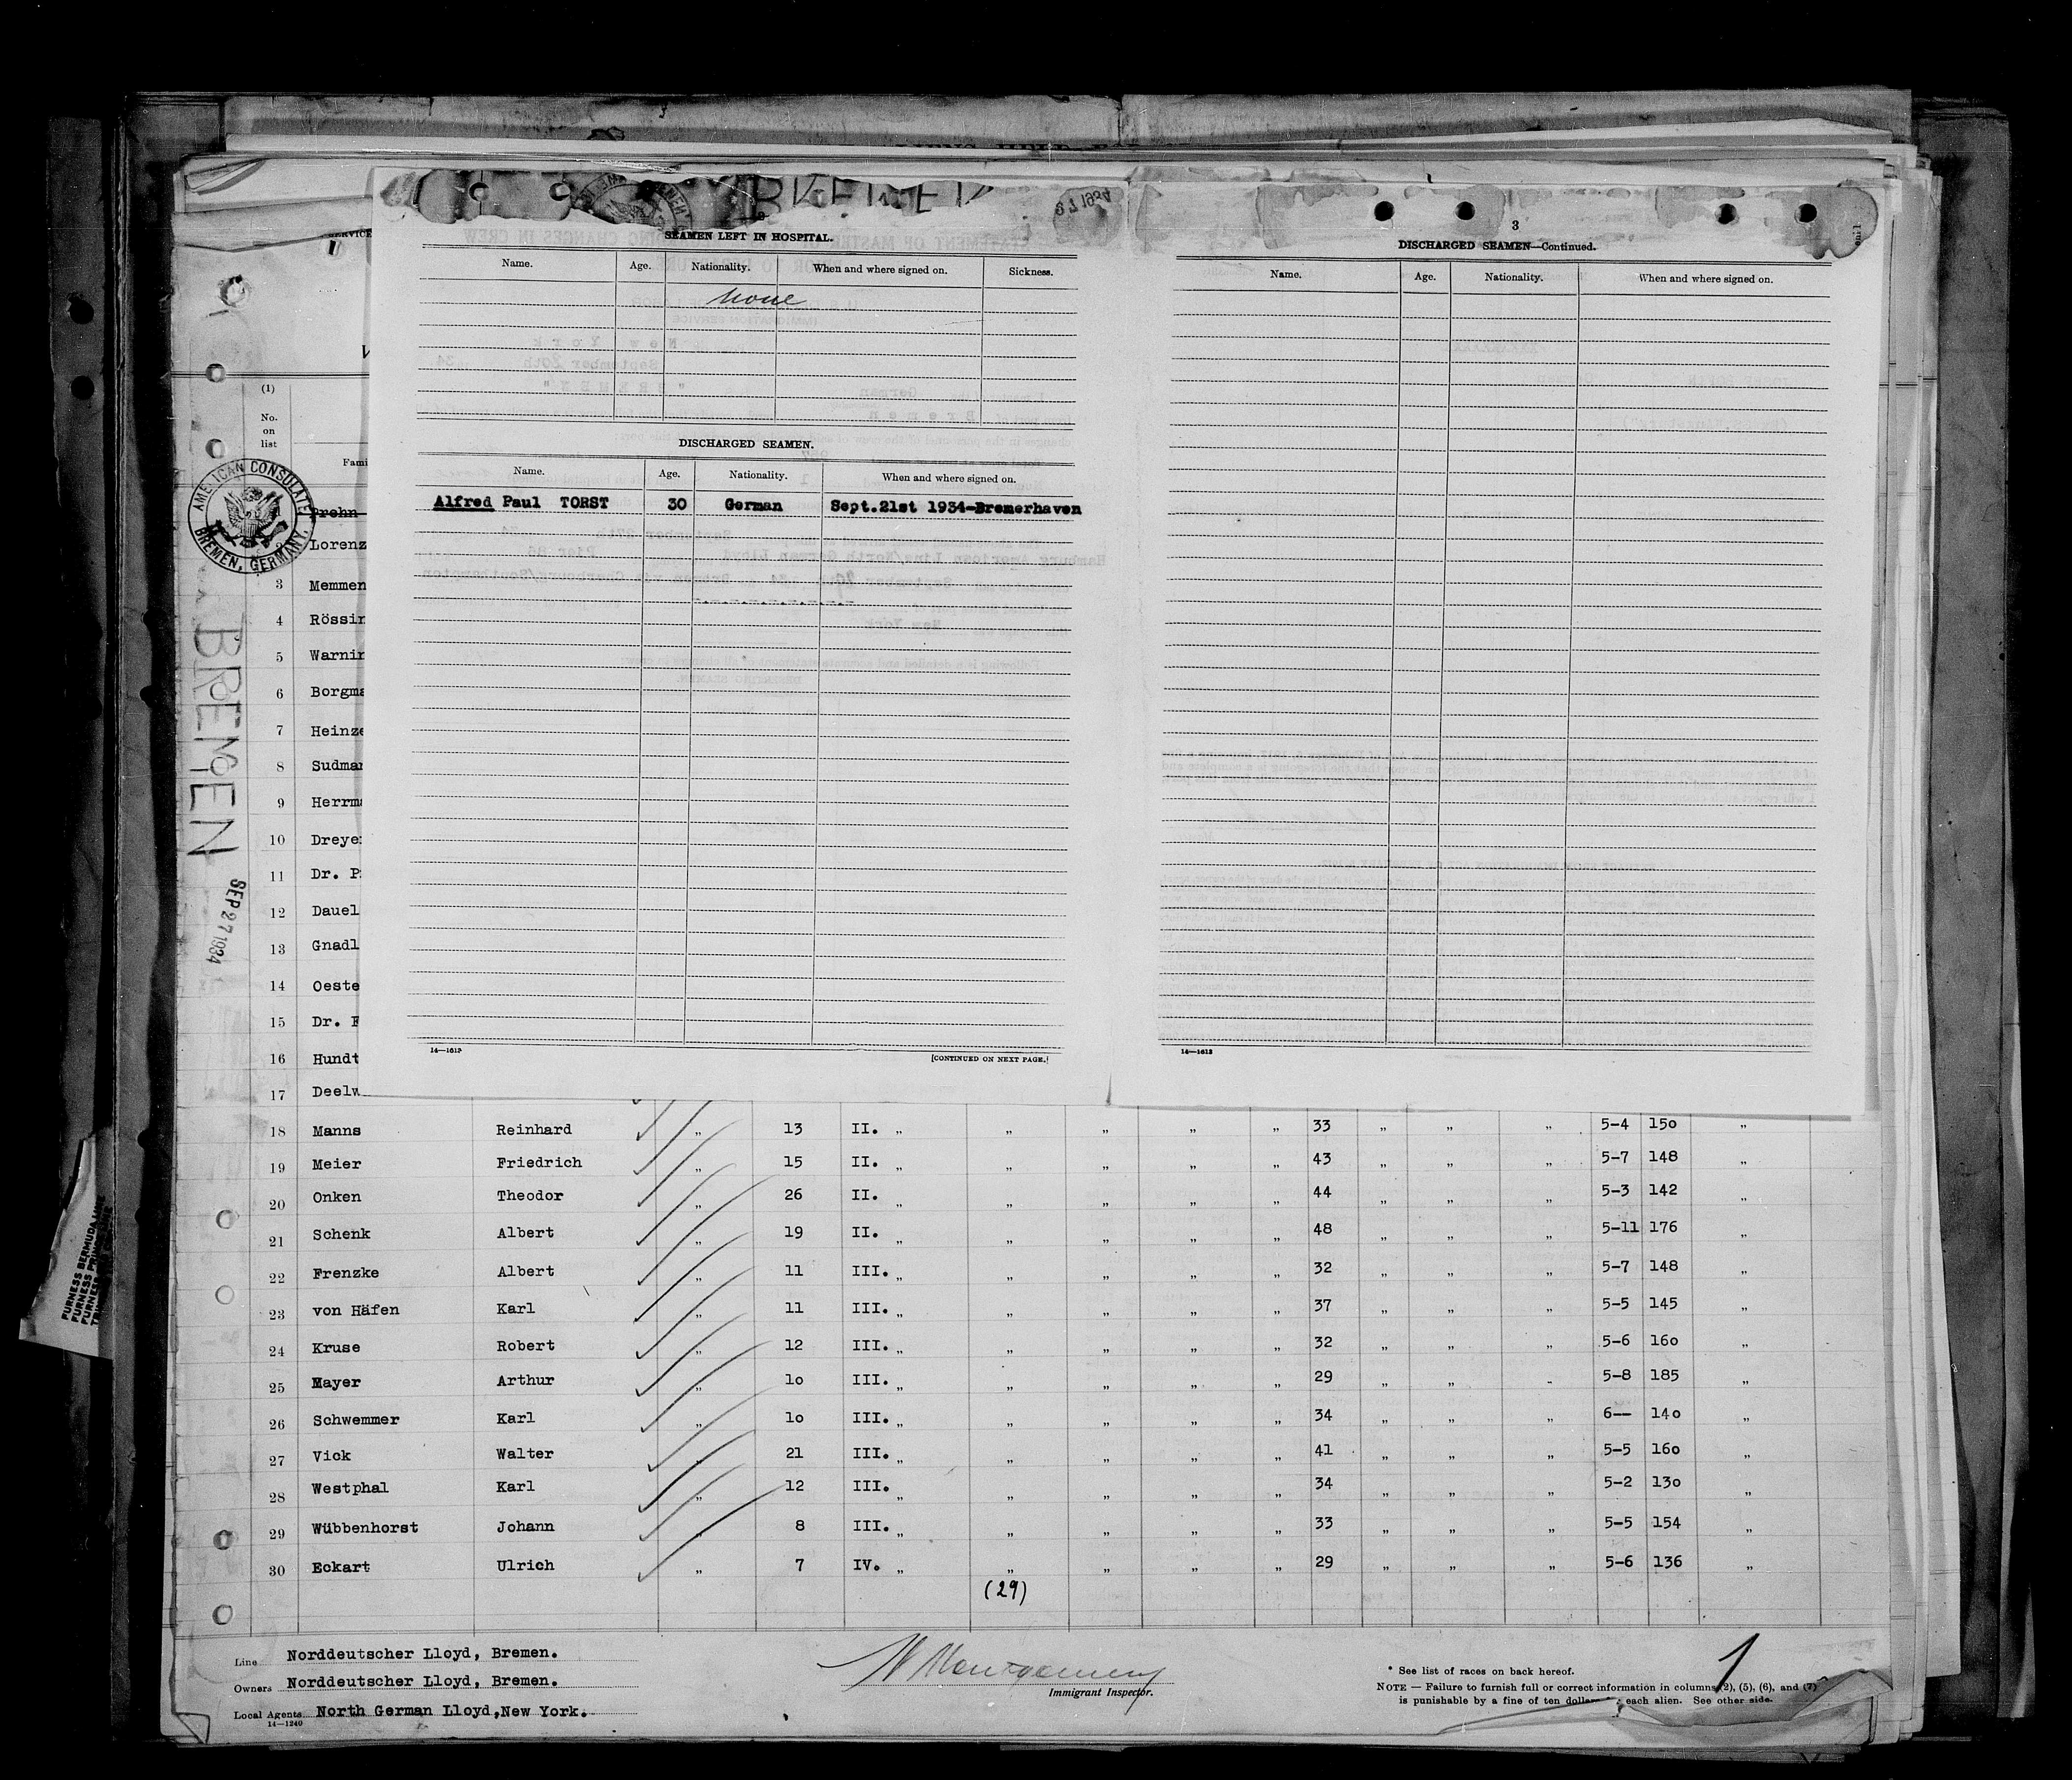 BREMEN
SEAMEN LEFT IN HOSPITAL.
Name. Age. Nationality. When and where signed on. Sickness.
None
DISCHARGED SEAMEN.
Name. Age. Nationality. When and where signed on.
Alfred Paul TORST 30 German Sept.21st 1934-Bremerhaven
14—1612
[CONTINUED ON NEXT PAGE.]
3
DISCHARGED SEAMEN—Continued.
Name. Age. Nationality. When and where signed on.
14—1612
(1)
No. on list
AMERICAN CONSULATE
BREMEN, GERMANY.
BREMEN
SEP 27 1934
Prehn
2 Lorenz
3 Memmen
4 Rössin
5 Warnin
6 Borgma
7 Heinze
8 Sudman
9 Herrma
10 Dreye
11 Dr. P
12 Dauel
13 Gnadl
14 Oeste
15 Dr. F
16 Hundt
17 Deelw
18 Manns Reinhard „ 13 II. „ „ „ „ „ 33 „ „ „ 5-4 15o „
19 Meier Friedrich „ 15 II. „ „ „ „ „ 43 „ „ „ 5-7 148 „
20 Onken Theodor „ 26 II. „ „ „ „ „ 44 „ „ „ 5-3 142 „
21 Schenk Albert „ 19 II. „ „ „ „ „ 48 „ „ „ 5-11 176 „
22 Frenzke Albert „ 11 III. „ „ „ „ „ 32 „ „ „ 5-7 148 „
23 von Häfen Karl „ 11 III. „ „ „ „ „ 37 „ „ „ 5-5 145 „
24 Kruse Robert „ 12 III. „ „ „ „ „ 32 „ „ „ 5-6 16o „
25 Mayer Arthur „ 1o III. „ „ „ „ „ 29 „ „ „ 5-8 185 „
26 Schwemmer Karl „ 1o III. „ „ „ „ „ 34 „ „ „ 6-- 14o „
27 Vick Walter „ 21 III. „ „ „ „ „ 41 „ „ „ 5-5 16o „
28 Westphal Karl „ 12 III. „ „ „ „ „ 34 „ „ „ 5-2 13o „
29 Wübbenhorst Johann „ 8 III. „ „ „ „ „ 33 „ „ „ 5-5 154 „
30 Eckart Ulrich „ 7 IV. „ „ „ „ „ 29 „ „ „ 5-6 136 „
(29)
Line Norddeutscher Lloyd, Bremen.
Owners Norddeutscher Lloyd, Bremen.
Local Agents North German Lloyd,New York.
14—1240
Montgomery
Immigrant Inspector.
* See list of races on back hereof.
NOTE — Failure to furnish full or correct information in columns (2), (5), (6), and (7)
is punishable by a fine of ten dollars each alien. See other side.
1
FURNESS BERMUDA LINE